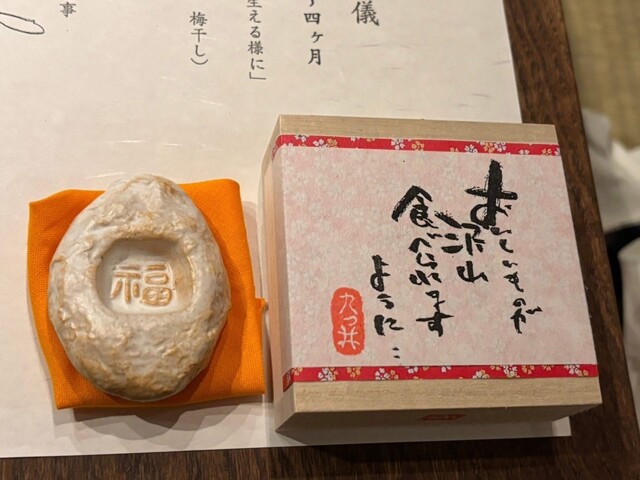 儀
四ヶ月
生える様に」
梅干し）
事
福
おいしいものが
沢山
食べられます
ように…
九つ井